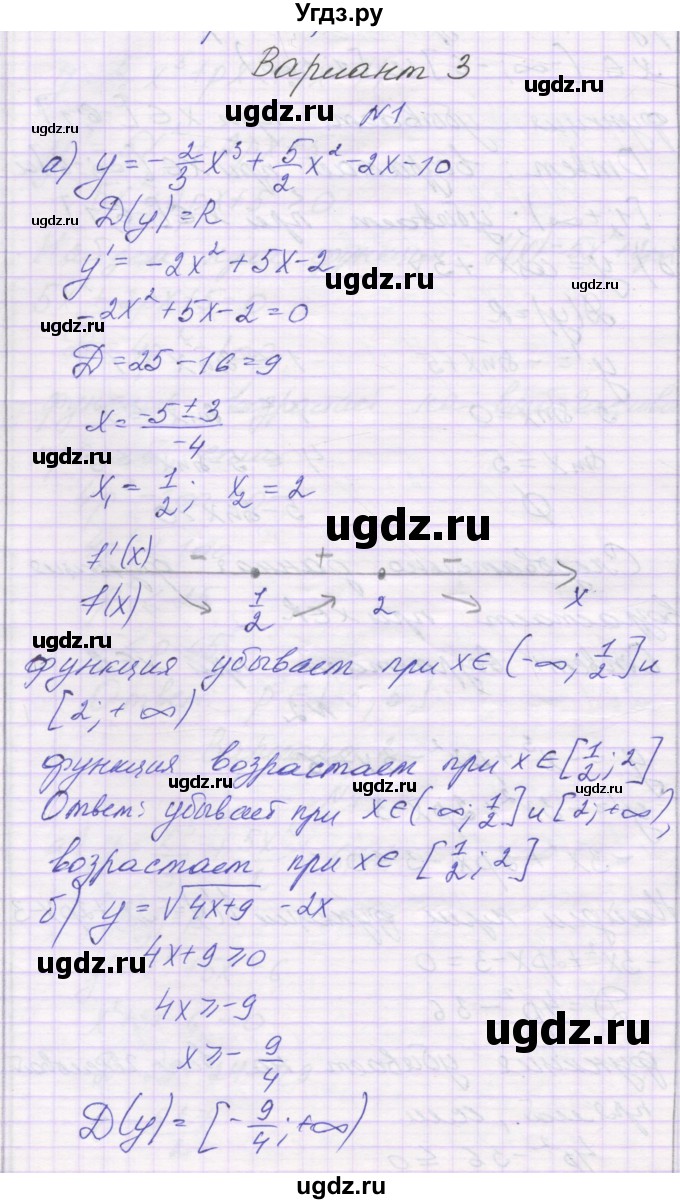 Угдз.ру
Вариант 3
ugdz.ru
ugdz.ru
№1
а) y = -2/3 x³ + 5/2 x² - 2x - 10
ugdz.ru
D(y) = R
y' = -2x² + 5x - 2
ugdz.ru
ugdz.ru
-2x² + 5x - 2 = 0
ugdz.ru
D = 25 - 16 = 9
x = (-5 ± 3)/(-4)
ugdz.ru
x₁ = 1/2; x₂ = 2
ugdz.ru
f'(x) - + -
f(x) 1/2 2 x
ugdz.ru
функция убывает при x ∈ (-∞; 1/2] и
[2; +∞)
функция возрастает при x ∈ [1/2; 2]
ugdz.ru
ugdz.ru
Ответ: убывает при x ∈ (-∞; 1/2] и [2; +∞),
возрастает при x ∈ [1/2; 2]
ugdz.ru
б) y = √(4x+9) - 2x
4x + 9 ≥ 0
ugdz.ru
4x ≥ -9
ugdz.ru
x ≥ -9/4
D(y) = [-9/4; +∞)
ugdz.ru